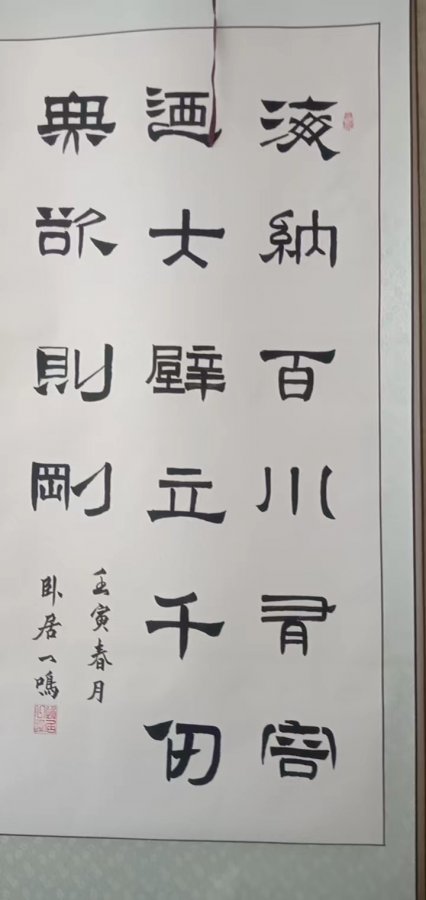 海納百川有容
迺大壁立千仞
無欲則剛
壬寅春月
卧居一鳴